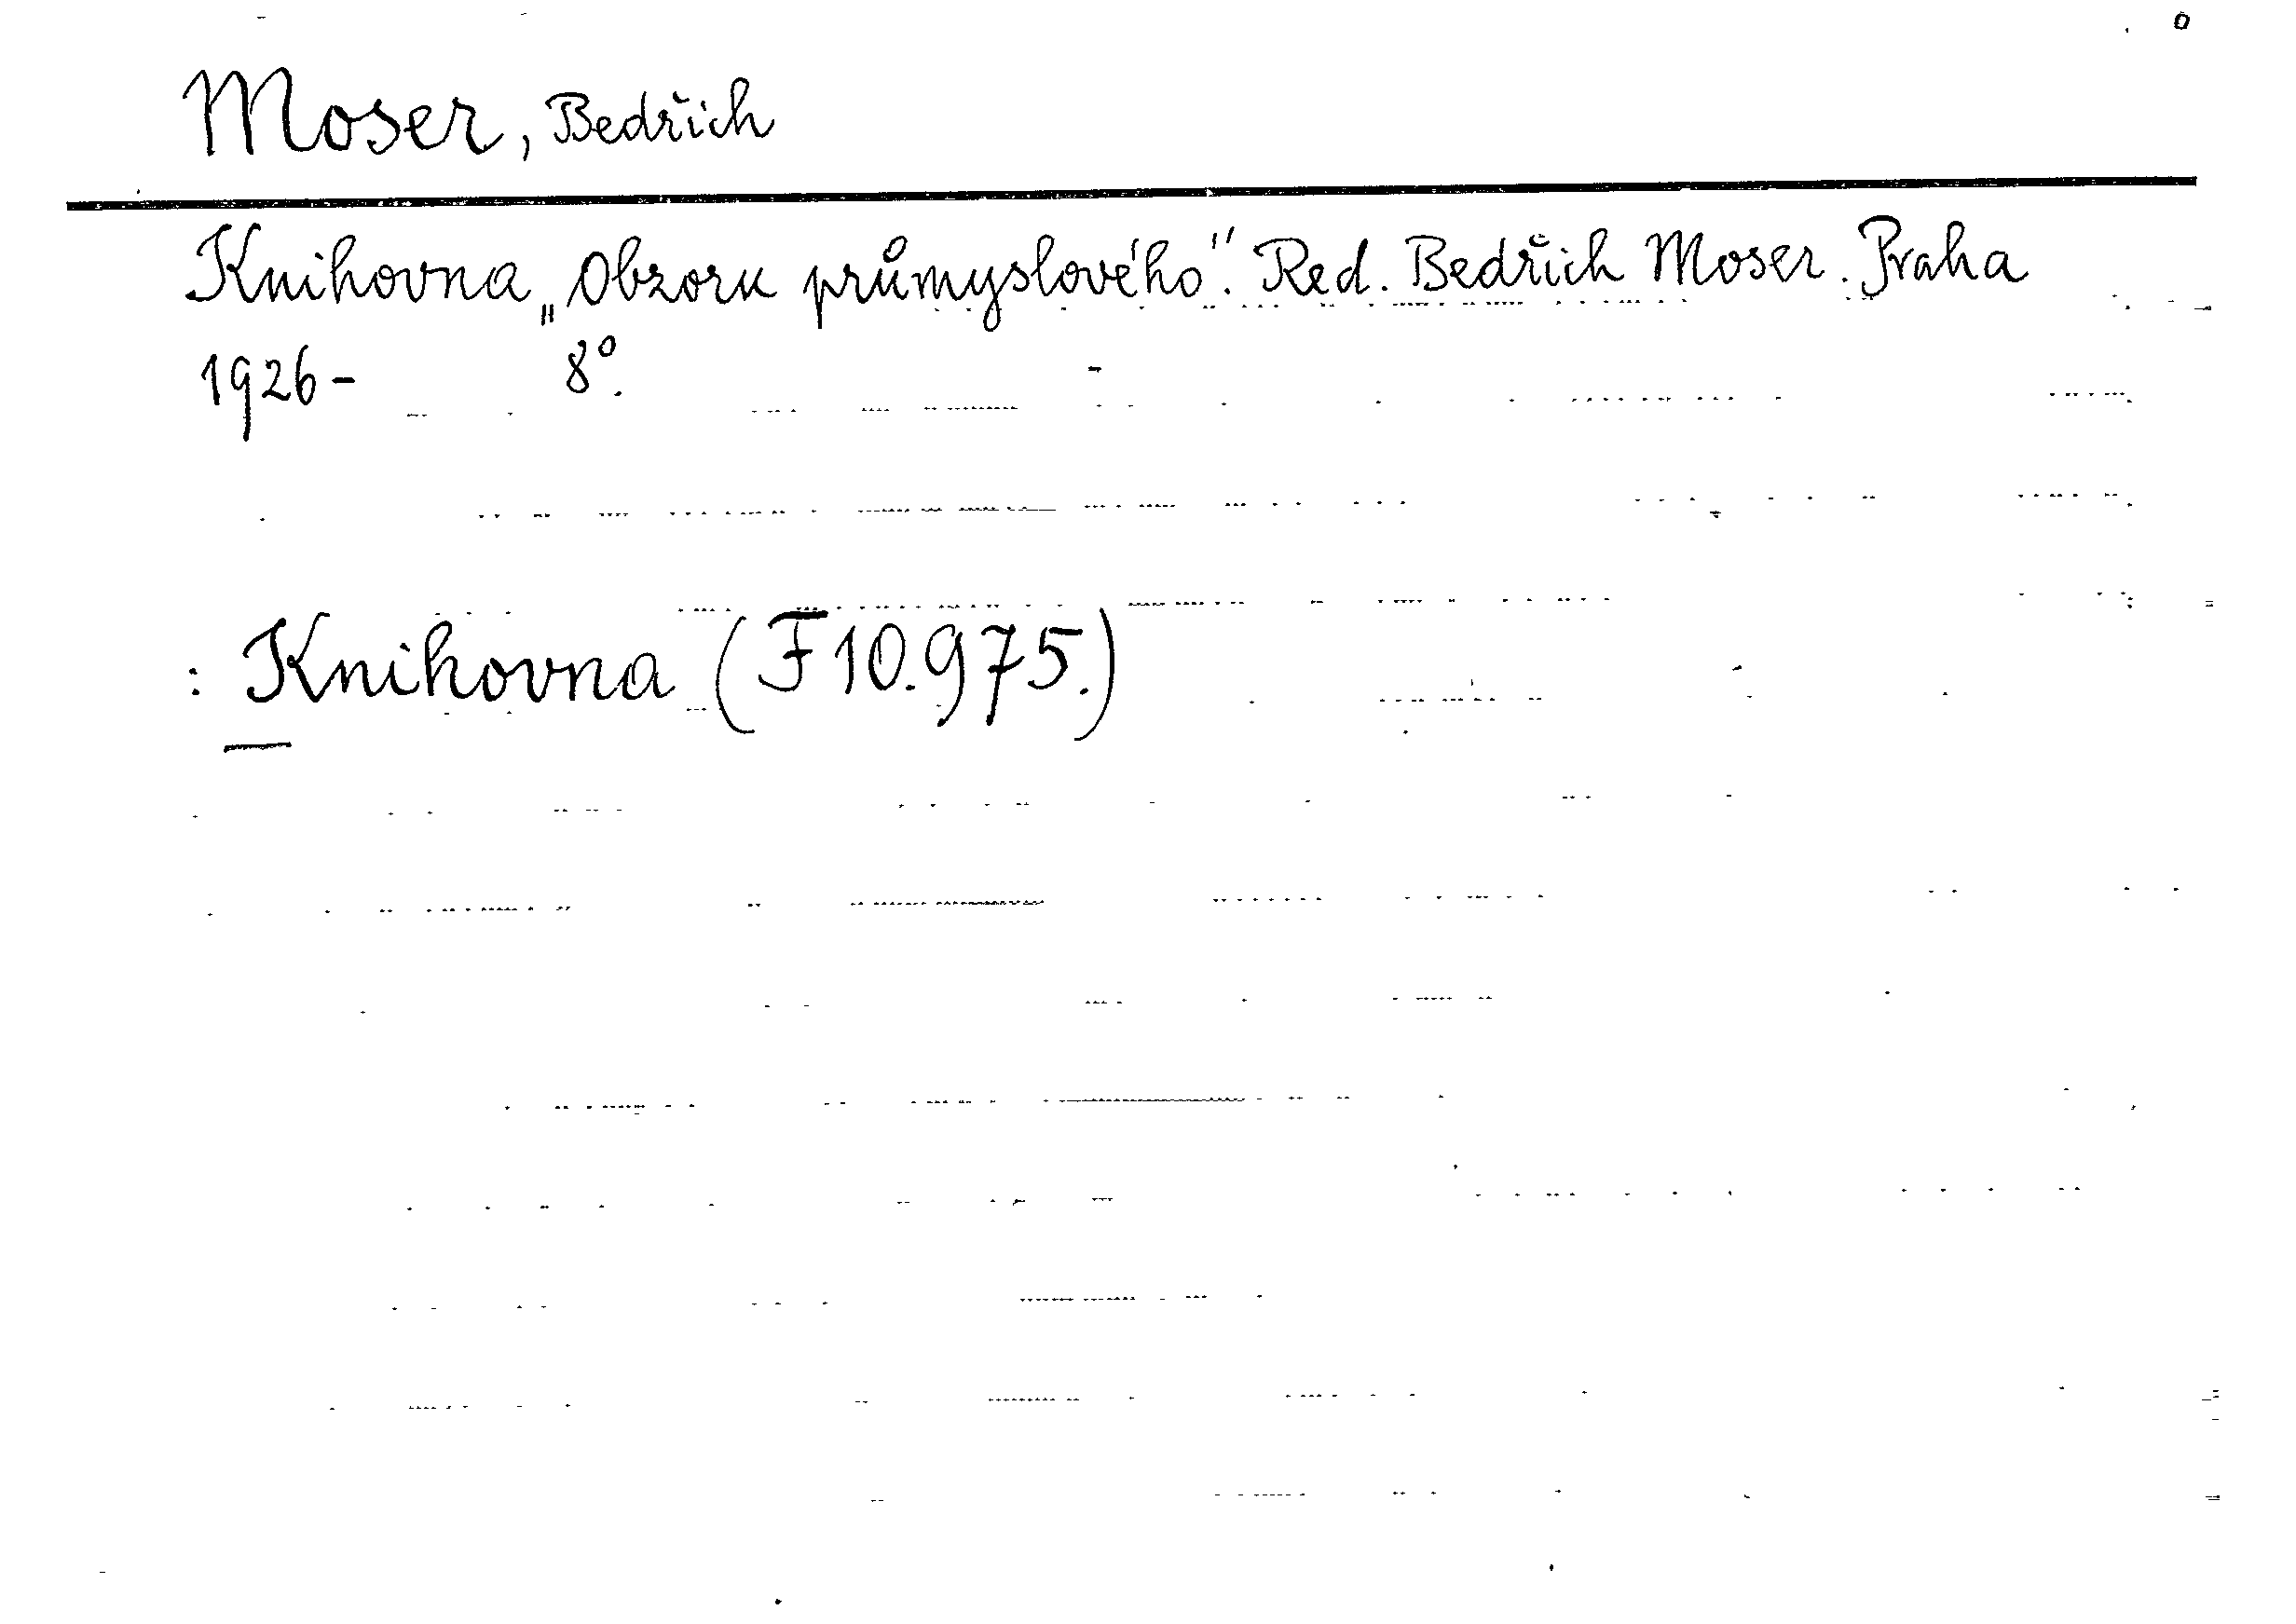 Moser, Bedřich
Knihovna „Obzoru průmyslového". Red. Bedřich Moser. Praha
1926- 8°.
: Knihovna (F 10.975.)